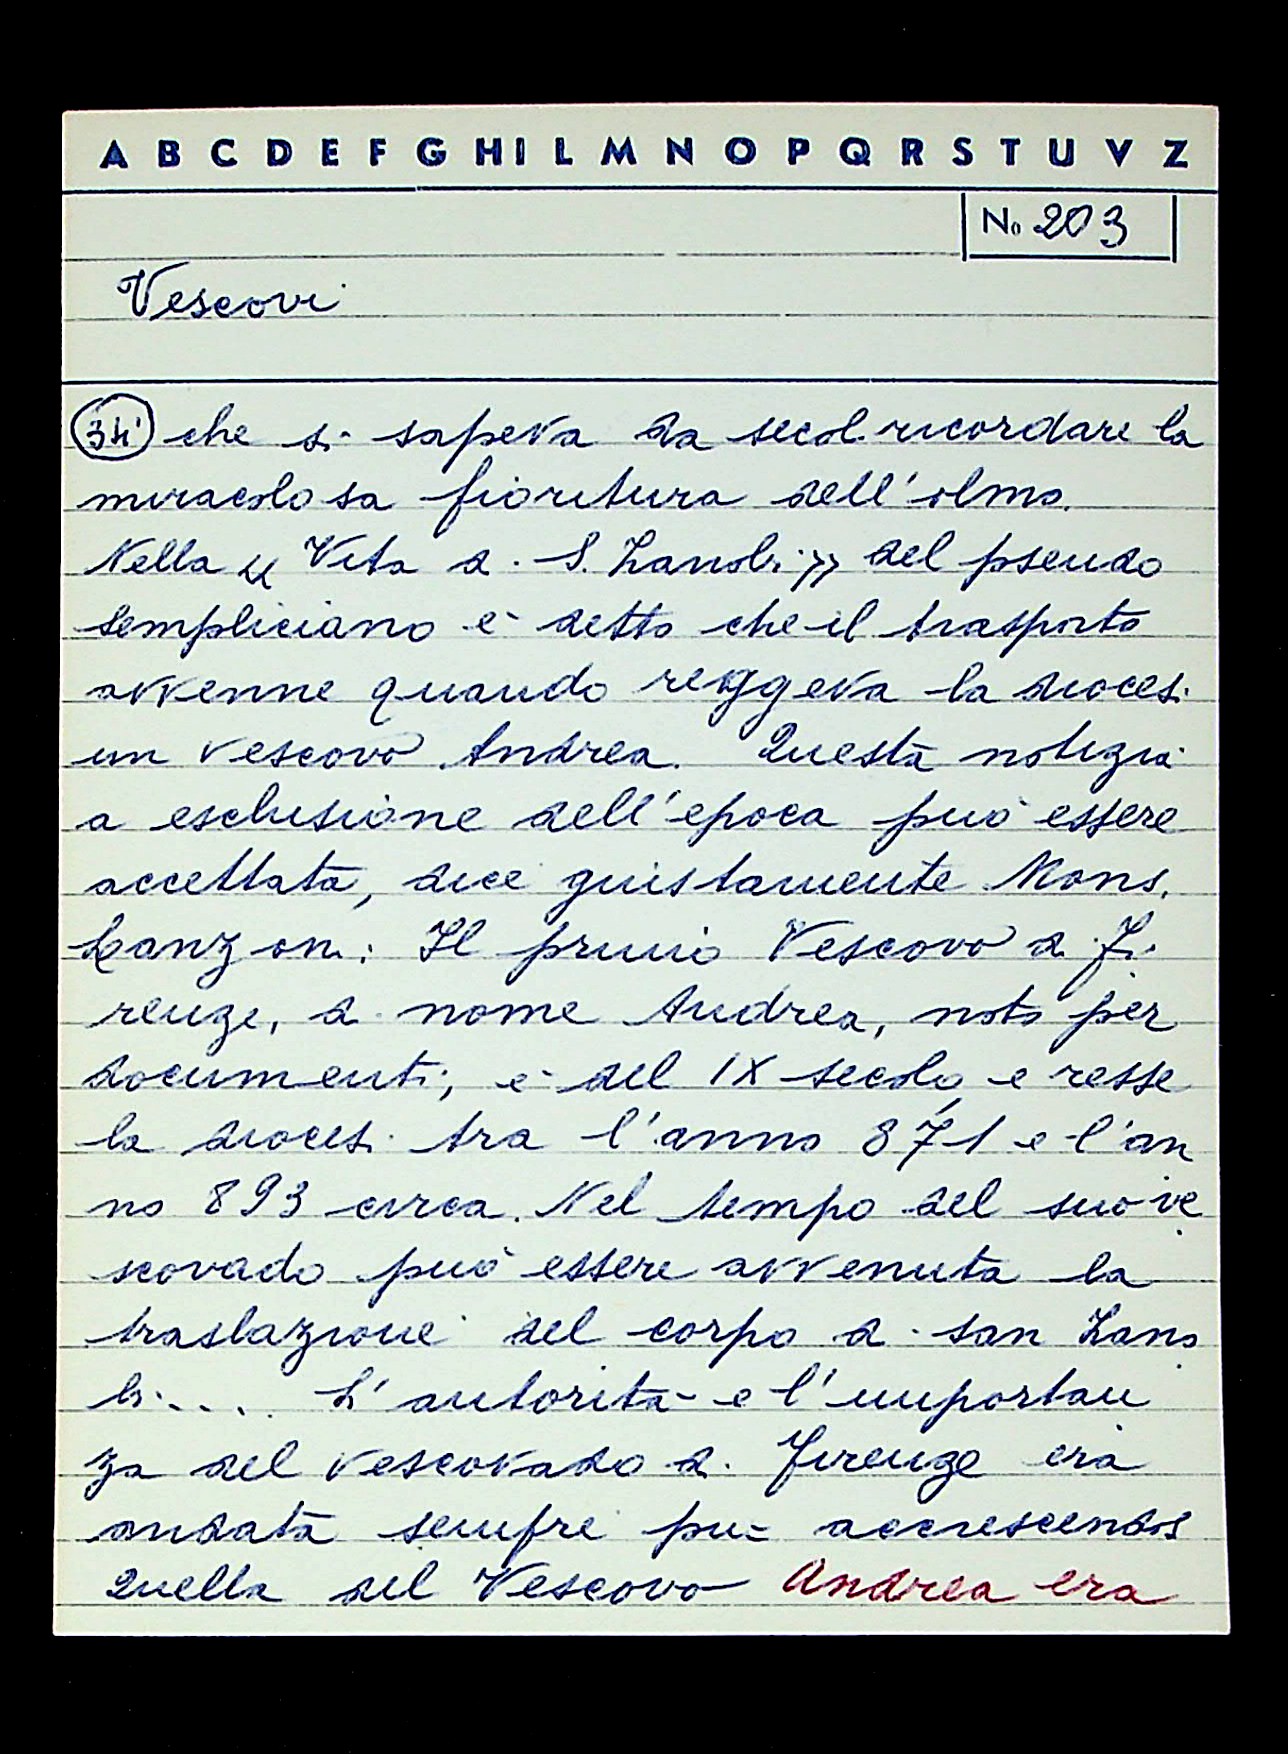 A B C D E F G H I L M N O P Q R S T U V Z
No 203
Vescovi
34 che si sapeva da secoli ricordare la
miracolosa fioritura dell'olmo.
Nella « Vita di S. Zanobi » del pseudo
sempliciano è detto che il trasporto
avvenne quando reggeva la diocesi
un vescovo Andrea. Questa notizia
a esclusione dell'epoca può essere
accettata, dice giustamente Mons.
Lanzoni: Il primo Vescovo di Fi
renze, di nome Andrea, noto per
documenti, è del IX secolo, e resse
la diocesi tra l'anno 871 e l'an
no 893 circa. Nel tempo del suo ve
scovado può essere avvenuta la
traslazione del corpo di san Zano
bi.... L'autorità e l'importan
za del vescovado di Firenze era
andata sempre più accrescendosi
Quella del Vescovo Andrea era